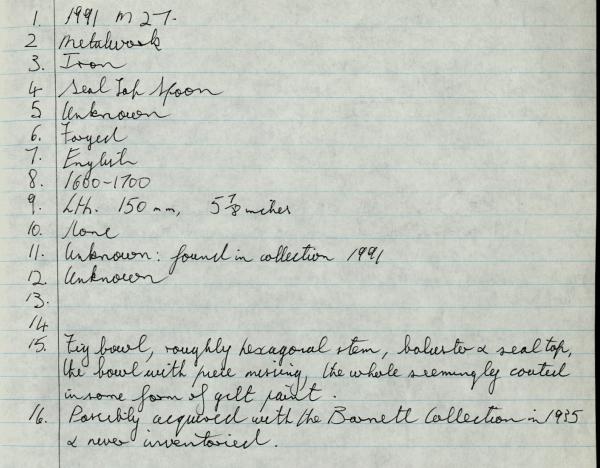 1. 1991 M 27.
2 Metalwork
3. Iron
4 Seal Top Spoon
5 Unknown
6. Forged
7. English
8. 1600-1700
9. Lth. 150 mm, 5 7/8 inches
10. None
11. Unknown: found in collection 1991
12. Unknown
13.
14
15. Fig bowl, roughly hexagonal stem, baluster & seal top,
the bowl with piece missing, the whole seemingly coated
in some form of gilt paint.
16. Possibly acquired with the Barnett Collection in 1935
& never inventoried.